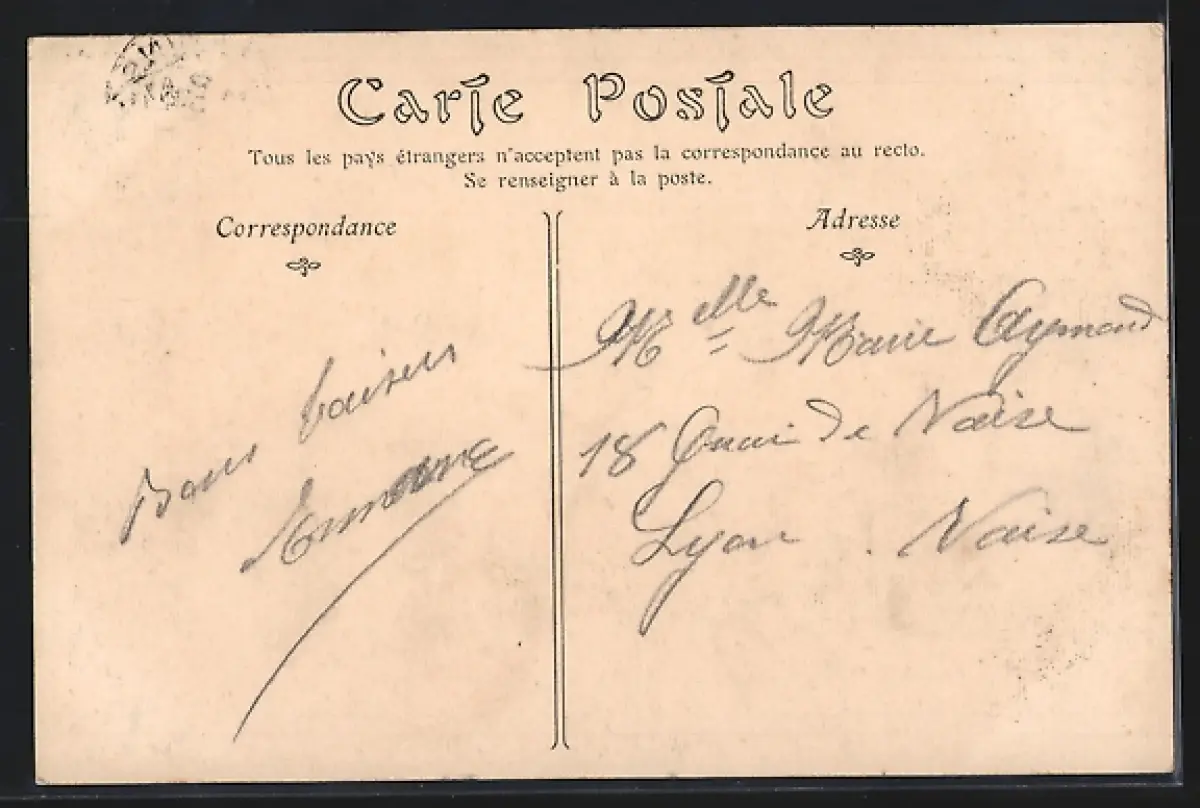 Carte Postale
Tous les pays étrangers n'acceptent pas la correspondance au recto.
Se renseigner à la poste.
Correspondance
Bons baisers
Adresse
Melle Marie Aymond
18 Quai de Vaise
Lyon . Vaise